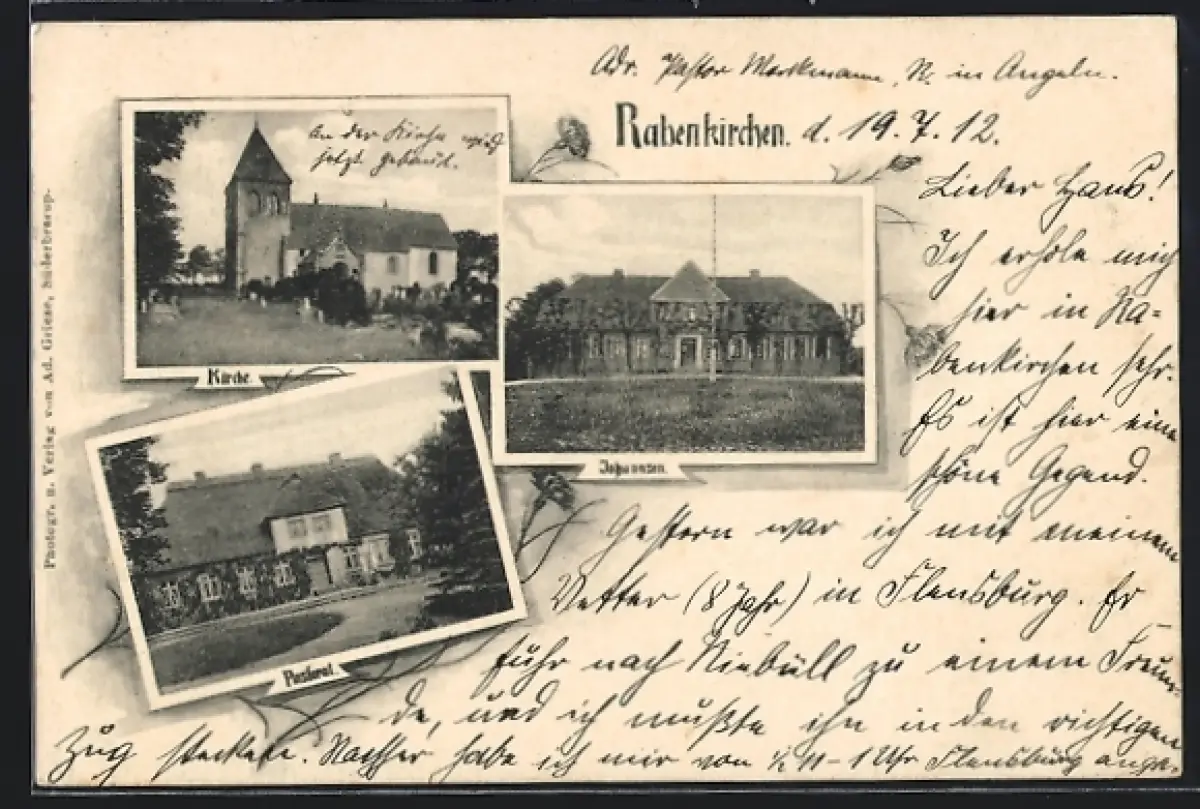 Adr. Pastor Workmann, N. in Angeln.
Rabenkirchen. d. 19. 7. 12.
an der Kirche wird
jetzt gebaut.
Kirche.
Johannsen.
Pastorat.
Photogr. u. Verlag von Ad. Giese, Süderbrarup.
Lieber Hans!
Ich erhole mich
hier in Ra-
benkirchen sehr.
Es ist hier eine
schöne Gegend.
Gestern war ich mit meinem
Vetter (8 Jahr) in Flensburg. Er
fuhr nach Niebüll zu einem Freun-
de, und ich mußte ihn in den richtigen
Zug stecken. Nachher habe ich mir von ½ 11 - 1 Uhr Flensburg ange-